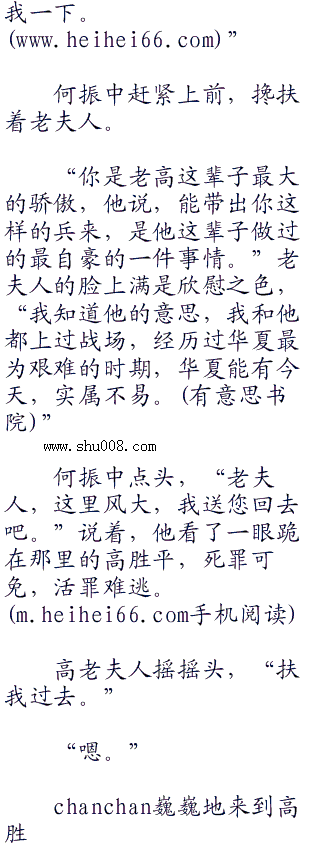 我一下。
(www.heihei66.com)”
何振中赶紧上前，搀扶
着老夫人。
“你是老高这辈子最大
的骄傲，他说，能带出你这
样的兵来，是他这辈子做过
的最自豪的一件事情。”老
夫人的脸上满是欣慰之色，
“我知道他的意思，我和他
都上过战场，经历过华夏最
为艰难的时期，华夏能有今
天，实属不易。(有意思书
院)”
www.shu008.com
何振中点头，“老夫
人，这里风大，我送您回去
吧。”说着，他看了一眼跪
在那里的高胜平，死罪可
免，活罪难逃。
(m.heihei66.com手机阅读)
高老夫人摇摇头，“扶
我过去。”
“嗯。”
chanchan巍巍地来到高
胜